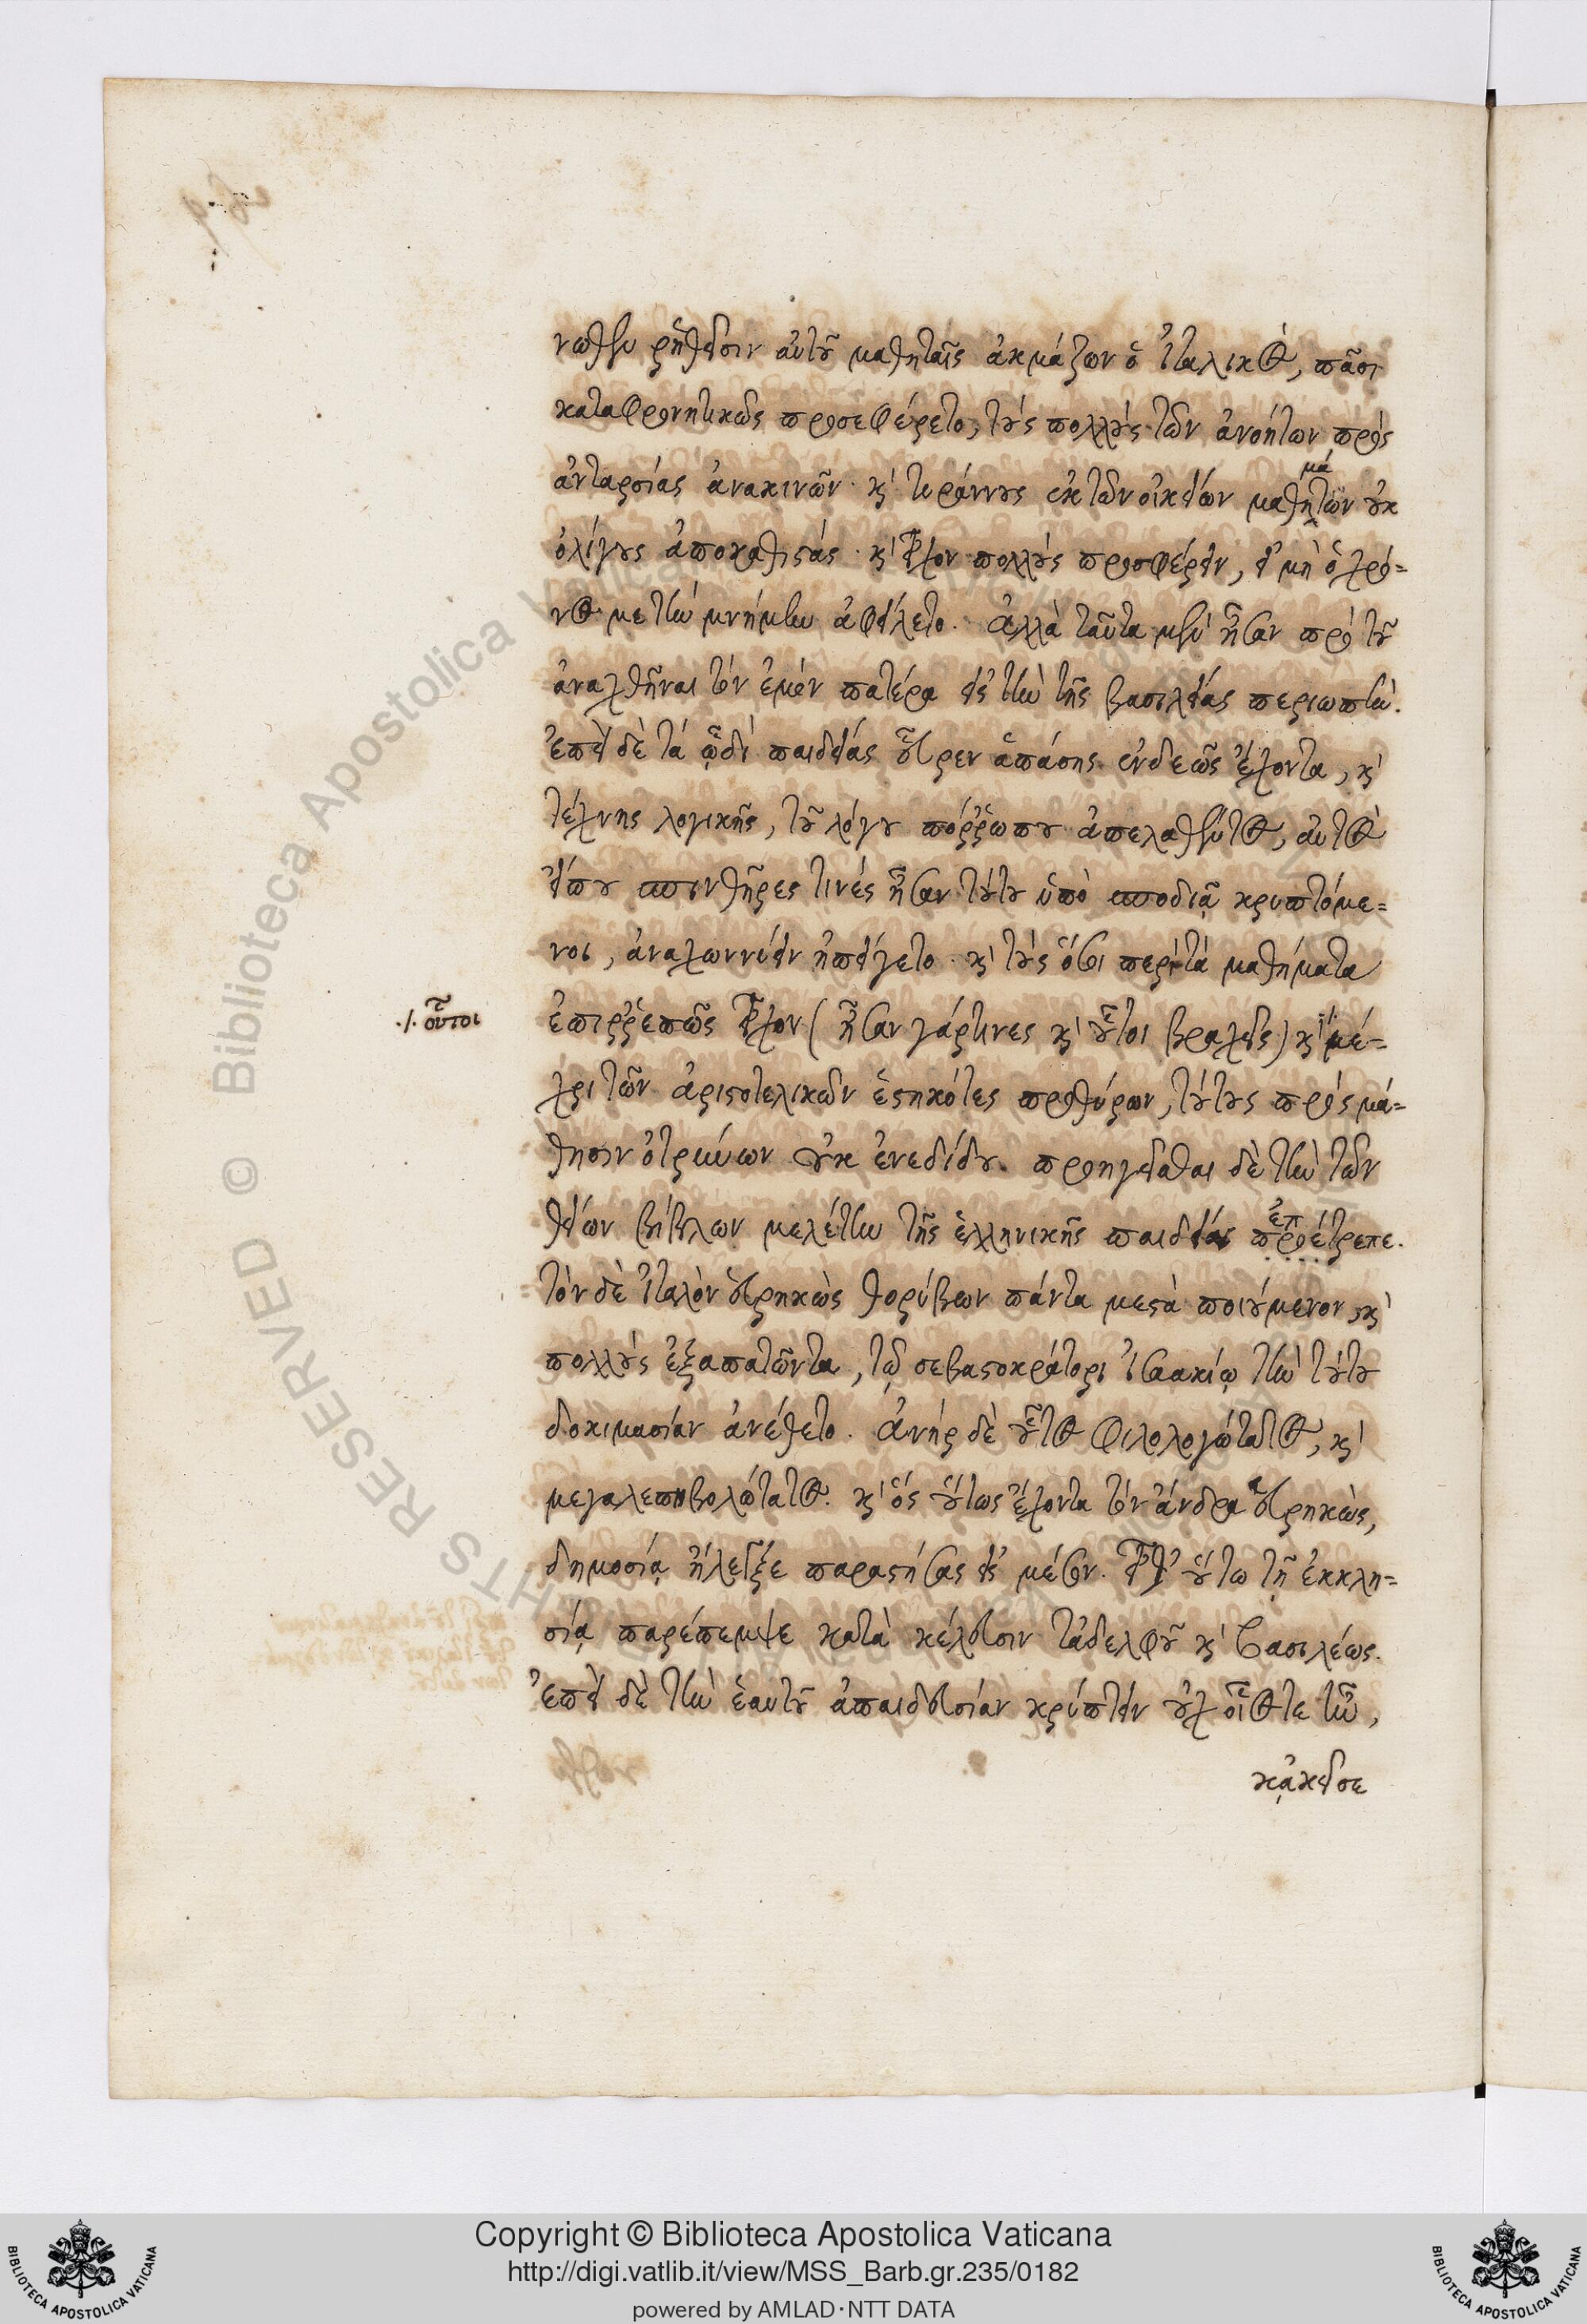 νωθεν ῥηθεῖσιν αὐτοῦ μαθηταῖς ἀκμάζων ὁ ἰταλικὸς, πᾶσι
καταφρονητικῶς προσεφέρετο, τοὺς πολλοὺς τῶν ἀνοήτων πρὸς
ἀνταρσίας ἀνακινῶν· καὶ τυράννους ἐκ τῶν οἰκείων μαθητῶν οὐκ
μά
ὀλίγους ἀποκαθιστάς· καὶ εἶχον πολλοὺς προσφέρειν, εἰ μὴ ὁ χρό=
νος με τὴν μνήμην ἀφείλετο. ἀλλὰ ταῦτα μὲν ἦσαν πρὸ τοῦ
ἀναχθῆναι τὸν ἐμὸν πατέρα εἰς τὴν τῆς βασιλείας περιωπήν.
ἐπεὶ δὲ τὰ ᾧδε παιδείας εὗρεν ἁπάσης ἐνδεῶς ἔχοντα, καὶ
τέχνης λογικῆς, τοῦ λόγου πόῤῥωπου ἀπελαθέντος, αὐτὸς
εἴπου σπινθῆρές τινες ἦσαν τούτου ὑπὸ σποδιᾷ κρυπτόμε=
νοι, ἀναχωννύειν ἠπείγετο· καὶ τοὺς ὅσοι περὶ τὰ μαθήματα
./. οὗτοι
ἐπιῤῥεπῶς εἶχον (ἦσαν γάρ τινες καὶ οὗτοι βραχεῖς) καὶ μέ=
χρι τῶν ἀριστοτελικῶν ἑστηκότες προθύρων, τούτους πρὸς μά=
θησιν ὀτρύνων οὐκ ἐνεδίδου. προηγεῖσθαι δὲ τὴν τῶν
θείων βίβλων μελέτην τῆς ἑλληνικῆς παιδείας προέτρεπε.
ἐπ
τὸν δὲ ἰταλὸν εὑρηκὼς θορύβων πάντα μεστὰ ποιούμενον, καὶ
πολλοὺς ἐξαπατῶντα, τῷ σεβαστοκράτορι ἰσαακίῳ τὴν τούτου
δοκιμασίαν ἀνέθετο. ἀνὴρ δὲ οὗτος φιλολογώτατος, καὶ
μεγαλεπηβολώτατος. καὶ ὃς οὕτως ἔχοντα τὸν ἄνδρα εὑρηκὼς,
δημοσίᾳ ἤλεγξε παραστήσας εἰς μέσον. εἶθ' οὕτω τῇ ἐκκλη=
σίᾳ παρέπεμψε κατὰ κέλευσιν τἀδελφοῦ καὶ βασιλέως.
ἐπεὶ δὲ τὴν ἑαυτοῦ ἀπαιδευσίαν κρύπτειν οὐχ οἷός τε ἦν,
κᾀκεῖσε
Copyright © Biblioteca Apostolica Vaticana
http://digi.vatlib.it/view/MSS_Barb.gr.235/0182
powered by AMLAD·NTT DATA